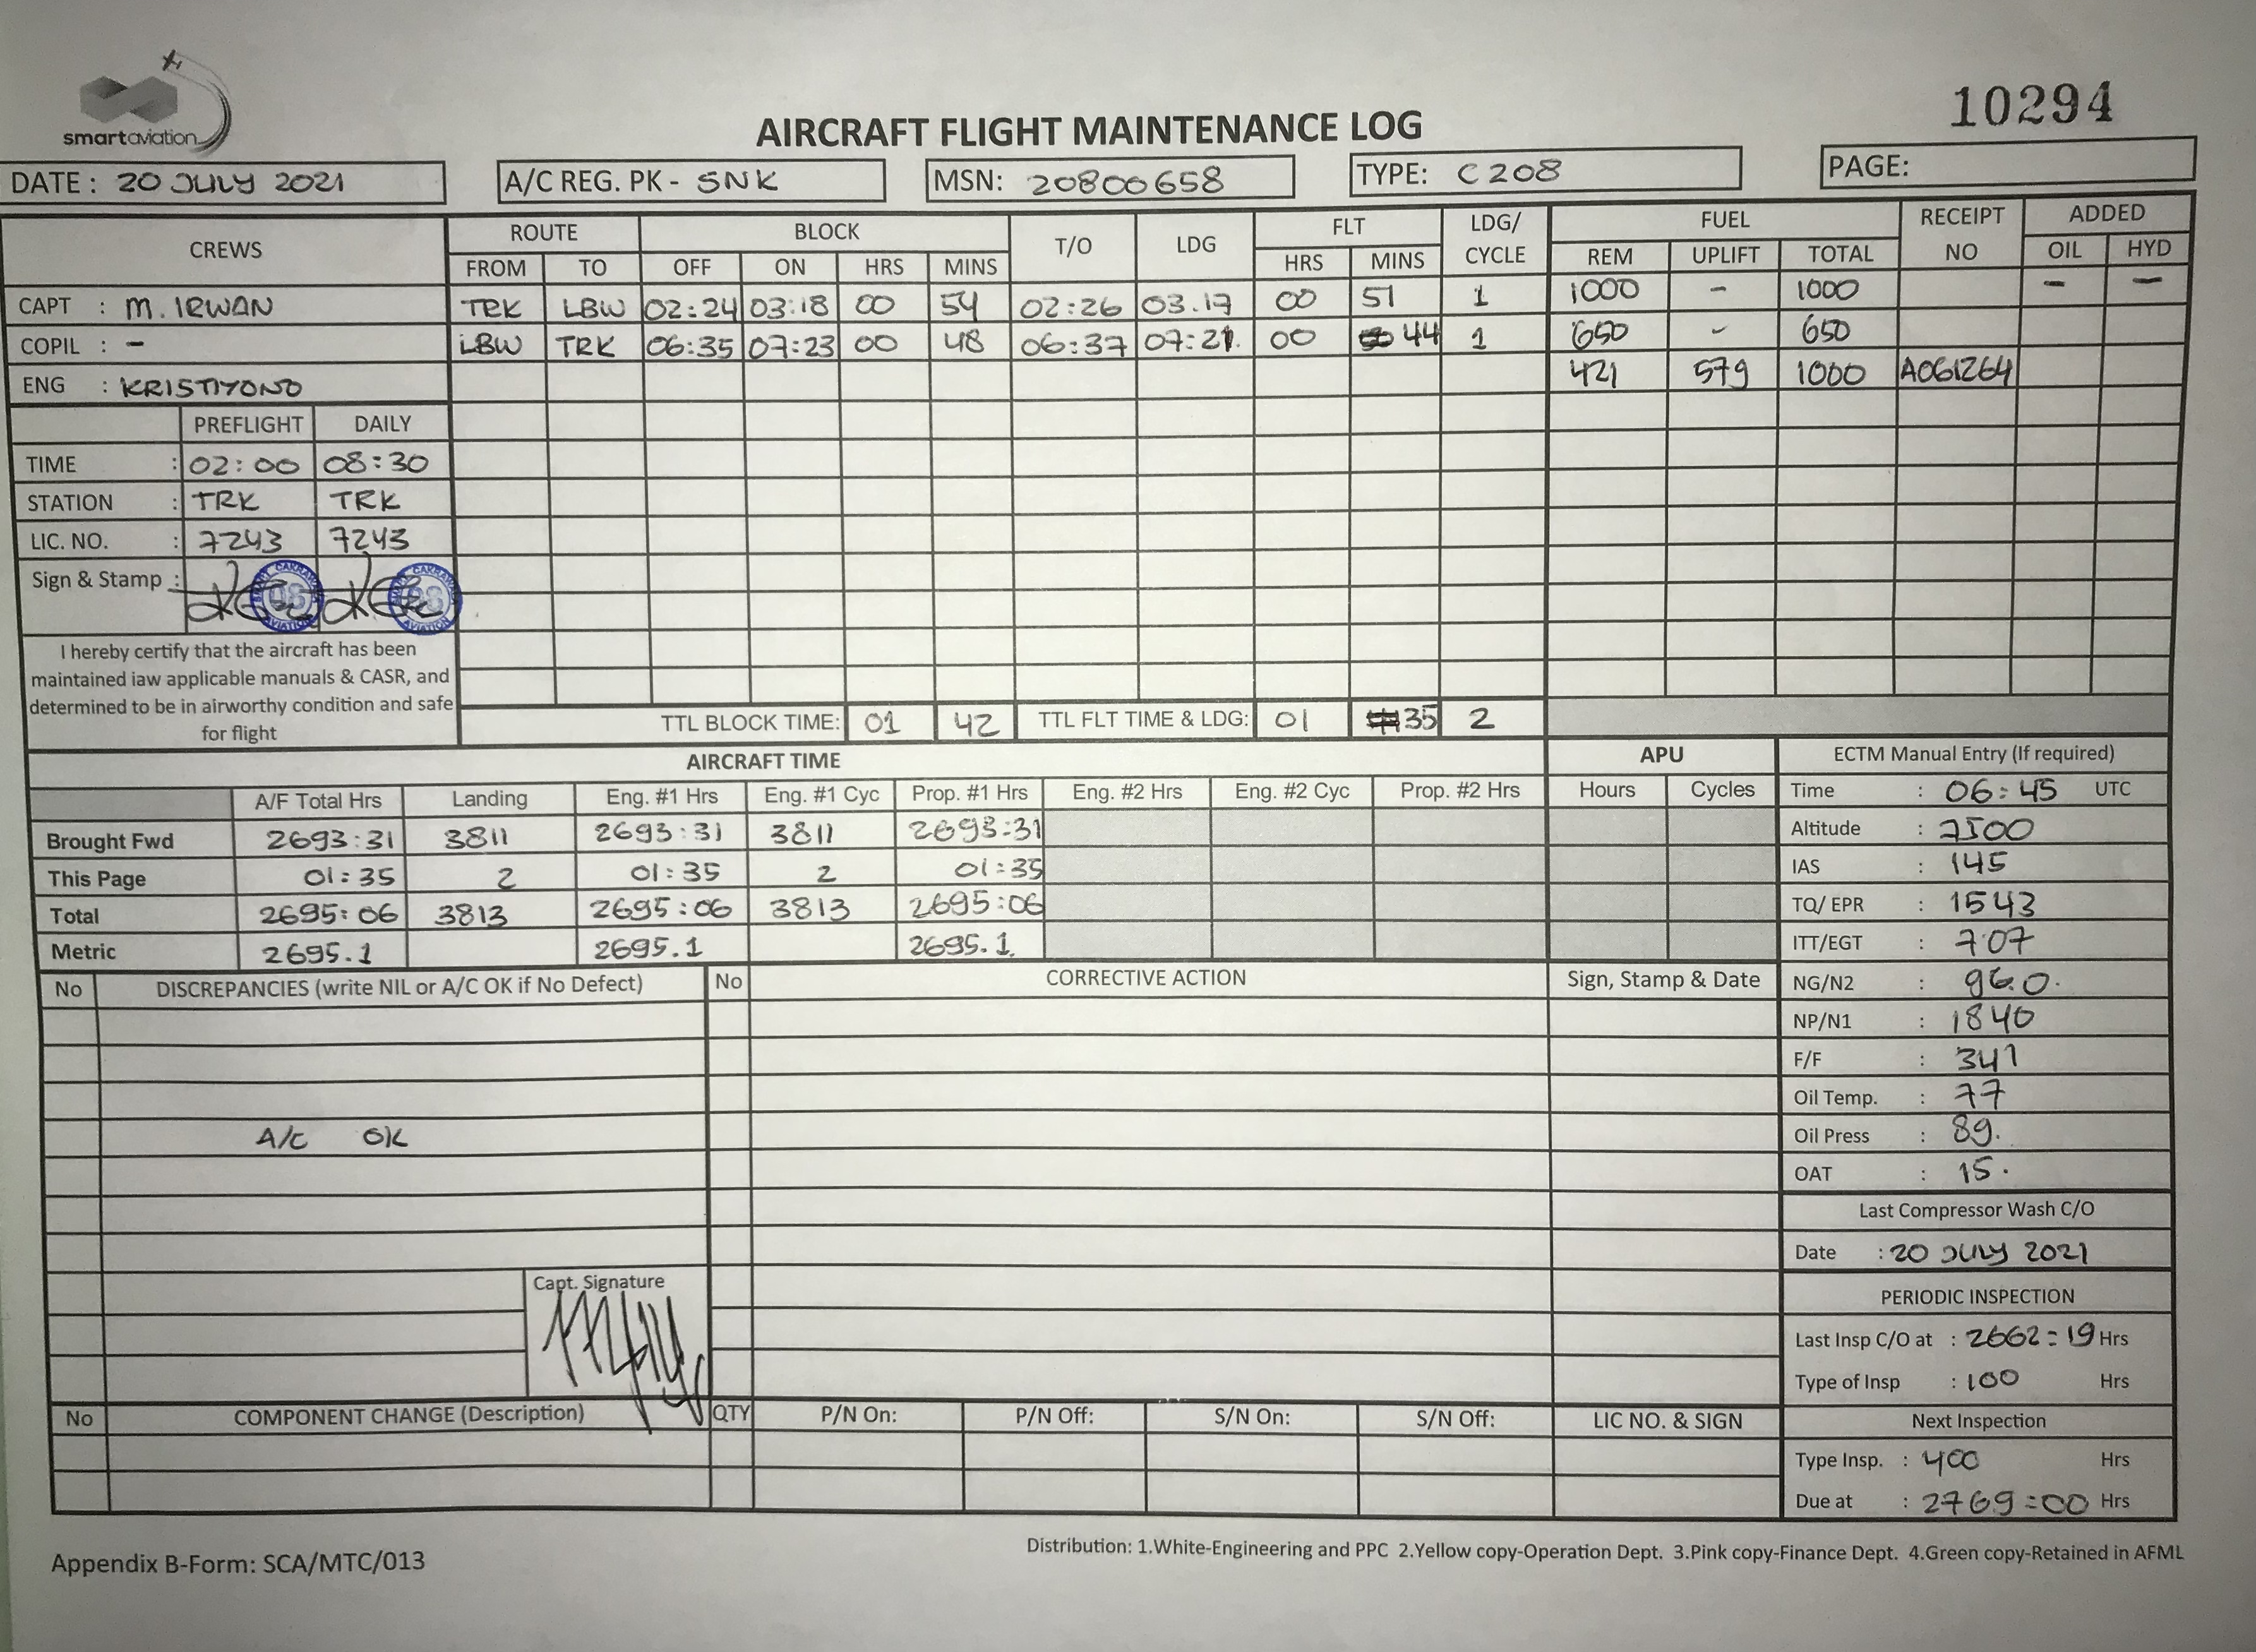 smartaviation
10294
AIRCRAFT FLIGHT MAINTENANCE LOG
DATE : 20 JULY 2021
A/C REG. PK - SNK
MSN: 20800658
TYPE: C208
PAGE:
CREWS ROUTE BLOCK T/O LDG FLT LDG/ CYCLE FUEL RECEIPT NO ADDED
FROM TO OFF ON HRS MINS HRS MINS REM UPLIFT TOTAL OIL HYD
CAPT : M. IRWAN TRK LBW 02:24 03:18 00 54 02:26 03.17 00 51 1 1000 - 1000 - -
COPIL : - LBW TRK 06:35 07:23 00 48 06:37 07:21. 00 44 1 650 - 650
ENG : KRISTIYONO 421 579 1000 A061264
PREFLIGHT DAILY
TIME : 02:00 08:30
STATION : TRK TRK
LIC. NO. : 7243 7243
Sign & Stamp :
I hereby certify that the aircraft has been
maintained iaw applicable manuals & CASR, and
determined to be in airworthy condition and safe
for flight
TTL BLOCK TIME: 01 42 TTL FLT TIME & LDG: 01 35 2
AIRCRAFT TIME APU
A/F Total Hrs Landing Eng. #1 Hrs Eng. #1 Cyc Prop. #1 Hrs Eng. #2 Hrs Eng. #2 Cyc Prop. #2 Hrs Hours Cycles
Brought Fwd 2693:31 3811 2693:31 3811 2693:31
This Page 01:35 2 01:35 2 01:35
Total 2695:06 3813 2695:06 3813 2695:06
Metric 2695.1 2695.1 2695.1.
ECTM Manual Entry (If required)
Time : 06:45 UTC
Altitude : 7500
IAS : 145
TQ/ EPR : 1543
ITT/EGT : 707
NG/N2 : 96.0.
NP/N1 : 1840
F/F : 341
Oil Temp. : 77
Oil Press : 89.
OAT : 15.
Last Compressor Wash C/O
Date : 20 JULY 2021
PERIODIC INSPECTION
Last Insp C/O at : 2662:19 Hrs
Type of Insp : 100 Hrs
Next Inspection
Type Insp. : 400 Hrs
Due at : 2769:00 Hrs
No DISCREPANCIES (write NIL or A/C OK if No Defect) No CORRECTIVE ACTION Sign, Stamp & Date
A/C OK
Capt. Signature
No COMPONENT CHANGE (Description) QTY P/N On: P/N Off: S/N On: S/N Off: LIC NO. & SIGN
Distribution: 1.White-Engineering and PPC 2.Yellow copy-Operation Dept. 3.Pink copy-Finance Dept. 4.Green copy-Retained in AFML
Appendix B-Form: SCA/MTC/013